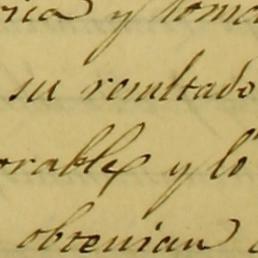 rica y tome
su resultado
orable y lo
obtenian